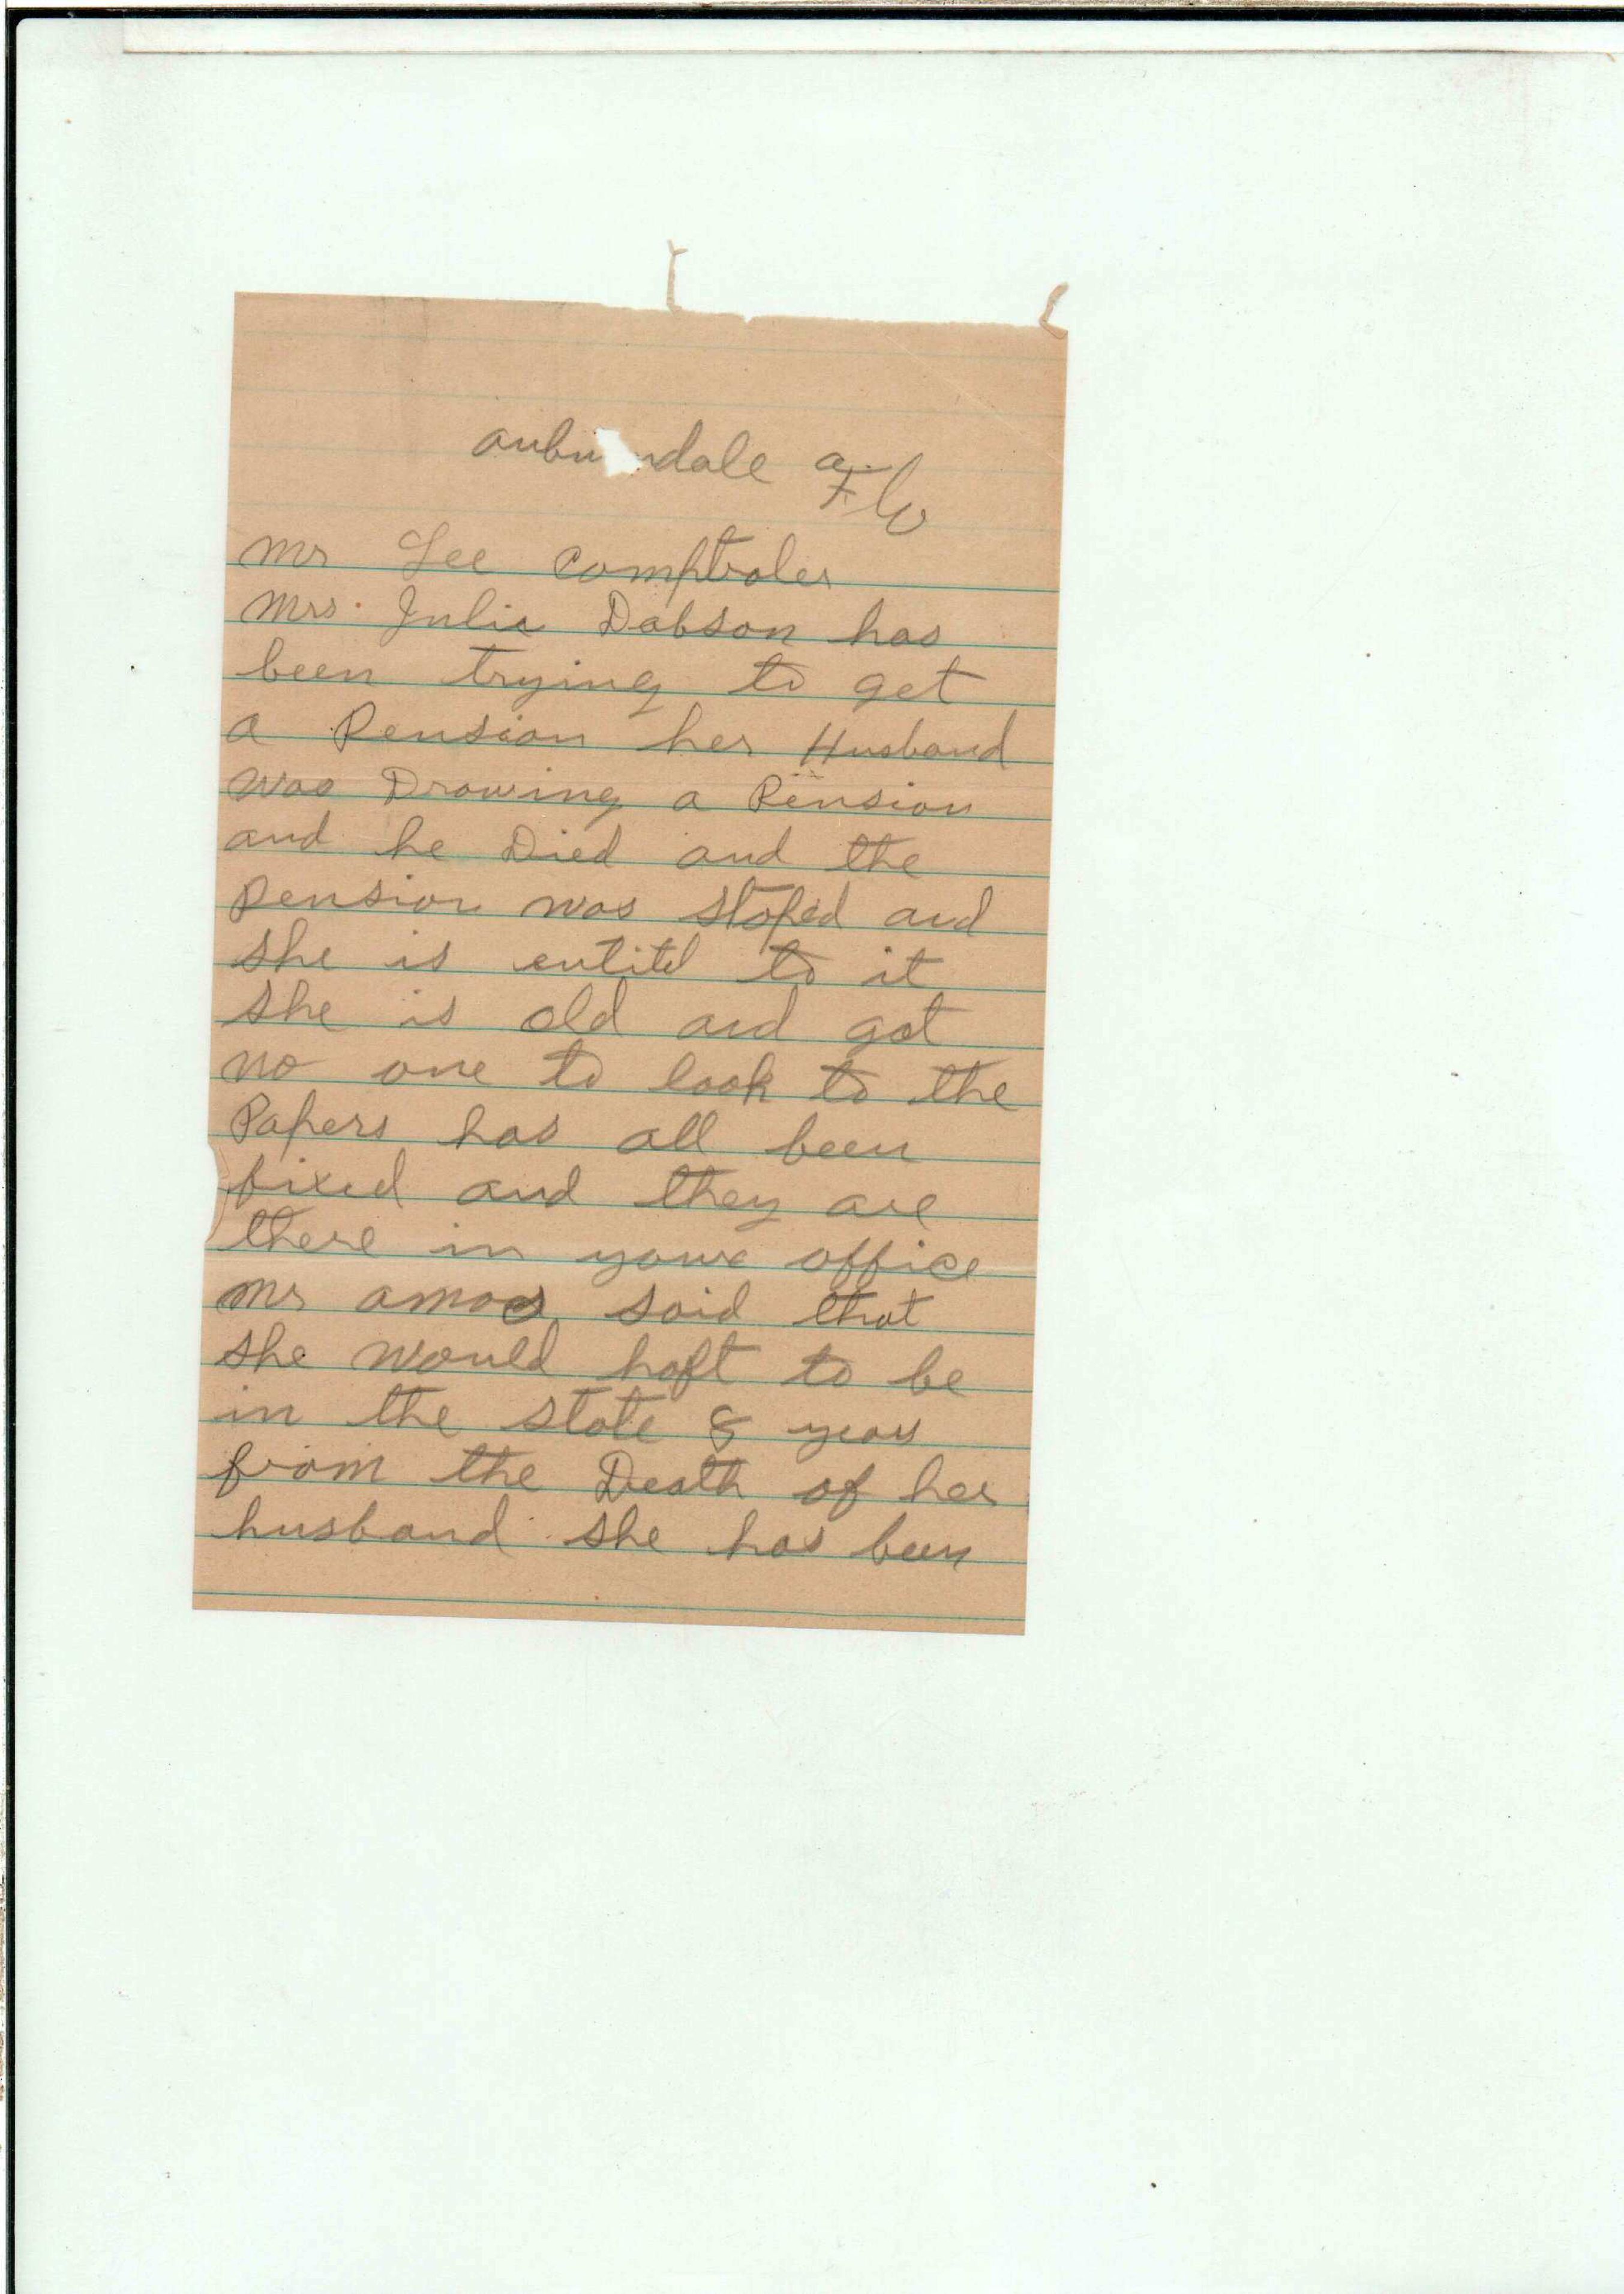 aubu ndale Fla
Mr Lee Comptroler
Mrs. Julia Dobson has
been trying to get
a Pension her Husband
was Drawing a Pension
and he Died and the
Pension was stoped and
she is entitd to it
she is old and got
no one to look to the
Papers has all been
fixed and they are
there in your office
Mr amos said that
she would haft to be
in the state 8 years
from the Death of her
husband she has been